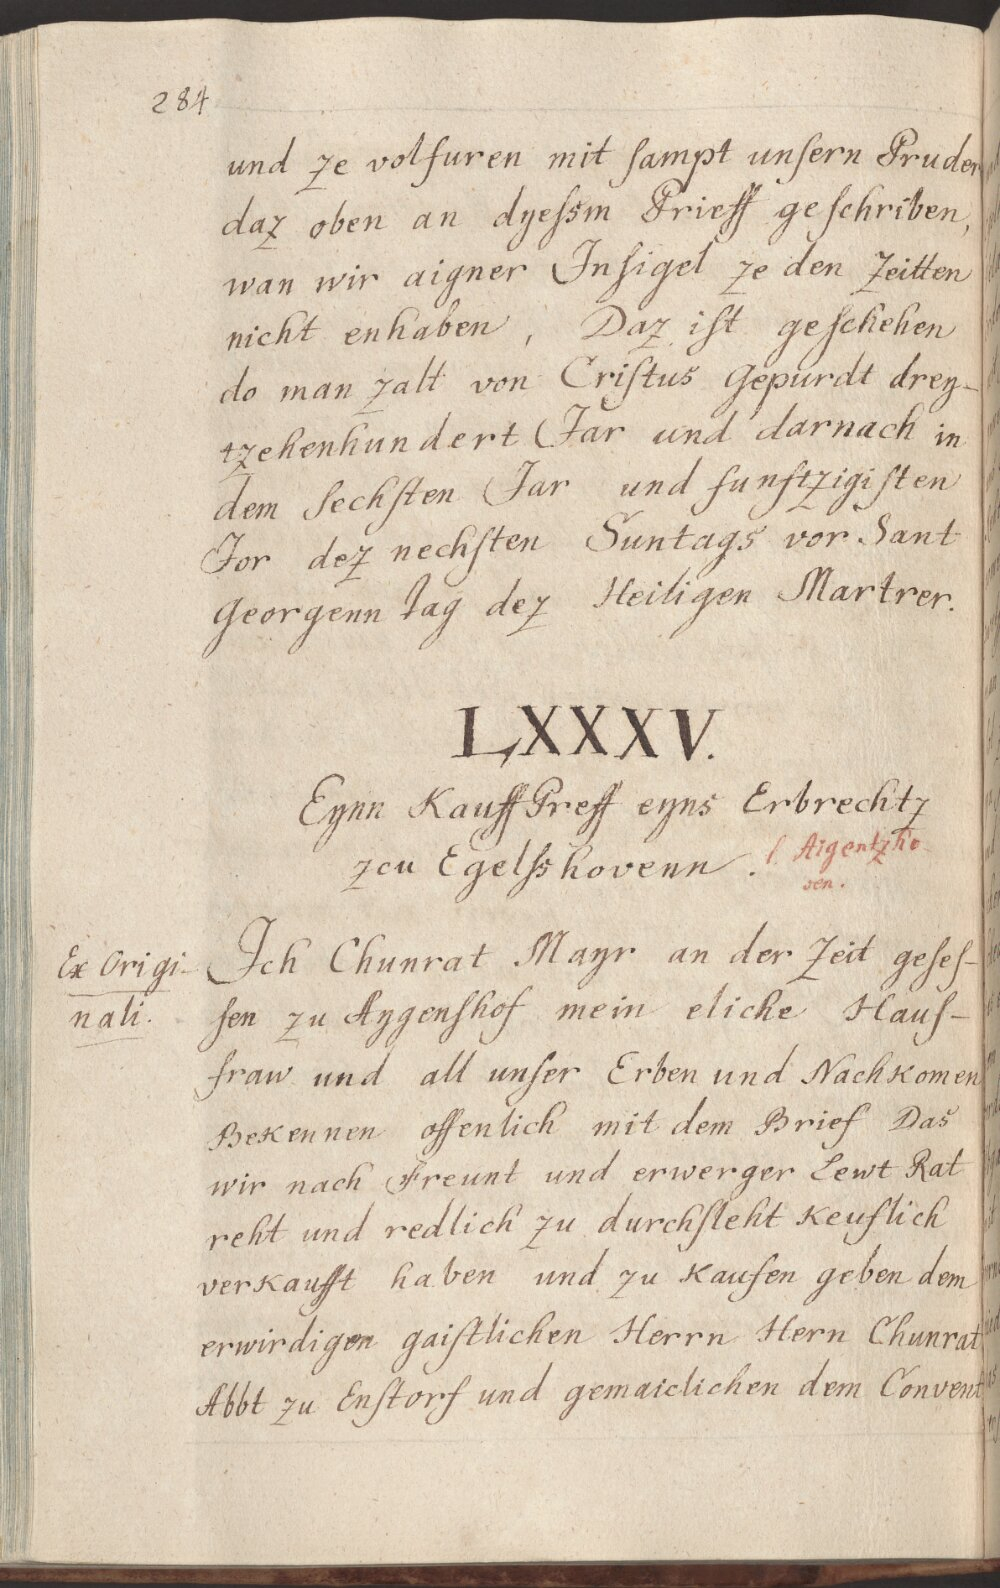 284
und ze volfuren mit sampt unsern Pruder
daz oben an dyessm Prieff geschriben,
wan wir aigner Insigel ze den Zeitten
nicht enhaben, Daz ist geschehen
do man zalt von Cristus Gepurdt drey-
tzehenhundert Jar und darnach in
dem sechsten Jar und funftzigisten
Jor dez nechsten Suntags vor Sant
Georgenn tag dez Heiligen Martrer.
LXXXV.
Eynn Kauff Preff eyns Erbrechtz
zcu Egelsshovenn. l. Aigentzho
ven.
Ex Origi-
nali.
Ich Chunrat Mayr an der Zeit geses-
sen zu Aygenshof mein eliche Haus-
fraw und all unser Erben und Nachkomen
Bekennen offenlich mit dem Brief Das
wir nach Freunt und erwerger Lewt Rat
reht und redlich zu durchsleht keuflich
verkaufft haben und zu kaufen geben dem
erwirdigen gaistlichen Herrn Hern Chunrat
Abbt zu Enstorf und gemaiclichen dem Convent